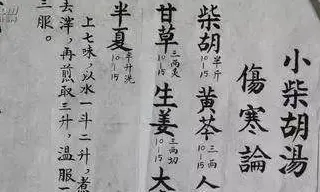 小柴胡湯
傷寒論
柴胡 半斤 10-15 黄芩 三両 10-15 人
甘草 三両炙 10-15 生姜 三両切 10-15 大
半夏 半升洗 10-15
上七味，以水一斗二升，煮
去滓，再煎取三升，温服一
三服。